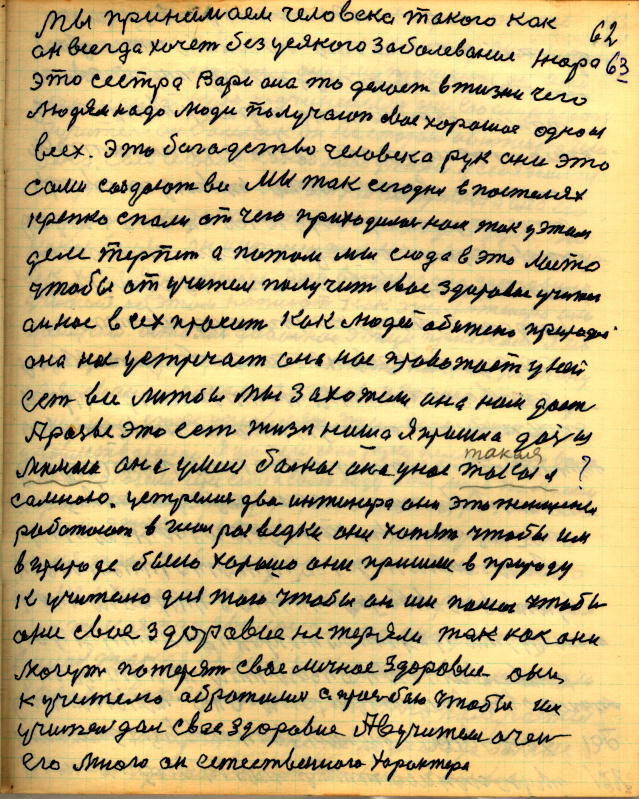 Мы принимаем человека такого как 62
он всегда хочет без усякого заболевания Жара 63
это сестра Вари она то делает в жизни чего
людям надо люди получают свае хорошае одно и
всех. Это богадство человека рук они это
сами создают все Мы так сегодня в постелях
крепко спали от чего приходилос нам так у этам
деле терпет а потом мы сюда в это место
чтобы от учителя получит свае здоровие учител
он нас всех просит как людей
она нас устречает она нас провожает у ней
сет все Мы захожели она нам дает
это сет жизн наша Я пришла
такая
она умеи балная она унас такая ?
самною. устрелис два инженера они это женщины
работают в разведки они хотят чтобы им
в природе было хорошо они пришли в природу
К учителю для того чтобы он им помог чтобы
они свае здоровие не теряли так как они
могут потерят свае личнае здоровие они
к учителю абратилис с прозбаю чтобы их
учител дал свае здоровие А учителя
его много он естественного характера